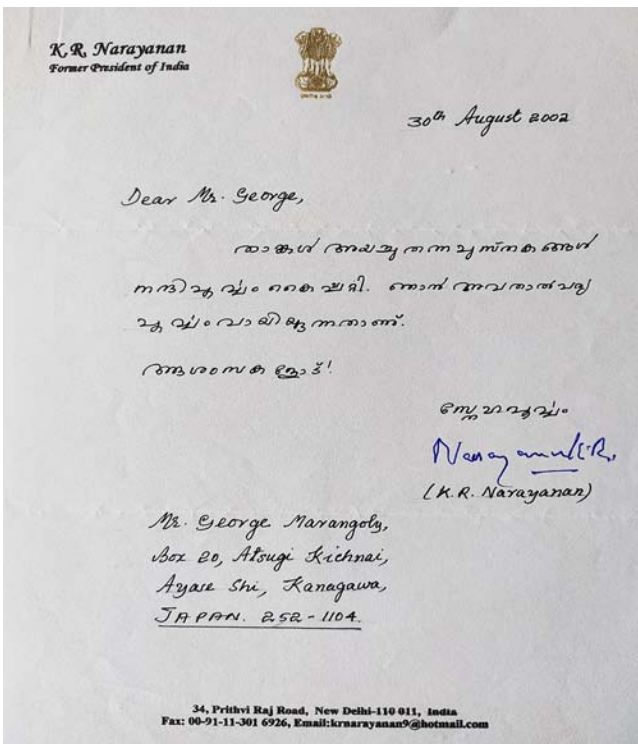 K.R. Narayanan
Former President of India
30th August 2002
Dear Mr. George,
താങ്കൾ അയച്ചു തന്ന പുസ്തകങ്ങൾ
നന്ദിപൂർവ്വം കൈപ്പറ്റി. ഞാൻ അവ താൽപര്യ
പൂർവ്വം വായിക്കുന്നതാണ്.
ആശംസകളോട്!
സ്നേഹപൂർവ്വം
Narayanan K.R.
(K.R. Narayanan)
Mr. George Marangoly,
Box 20, Atsugi Kichnai,
Ayase Shi, Kanagawa,
JAPAN. 252-1104.
34, Prithvi Raj Road, New Delhi-110 011, India
Fax: 00-91-11-301 6926, Email:krnarayanan9@hotmail.com